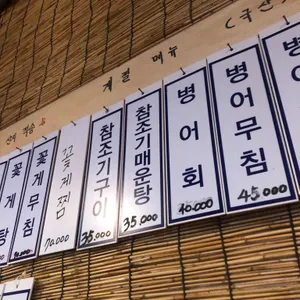 계절 메뉴
꽃게탕
꽃게무침
꽃게찜
70,000
참조기구이
35,000
참조기매운탕
35,000
병어회
40,000
병어무침
45,000